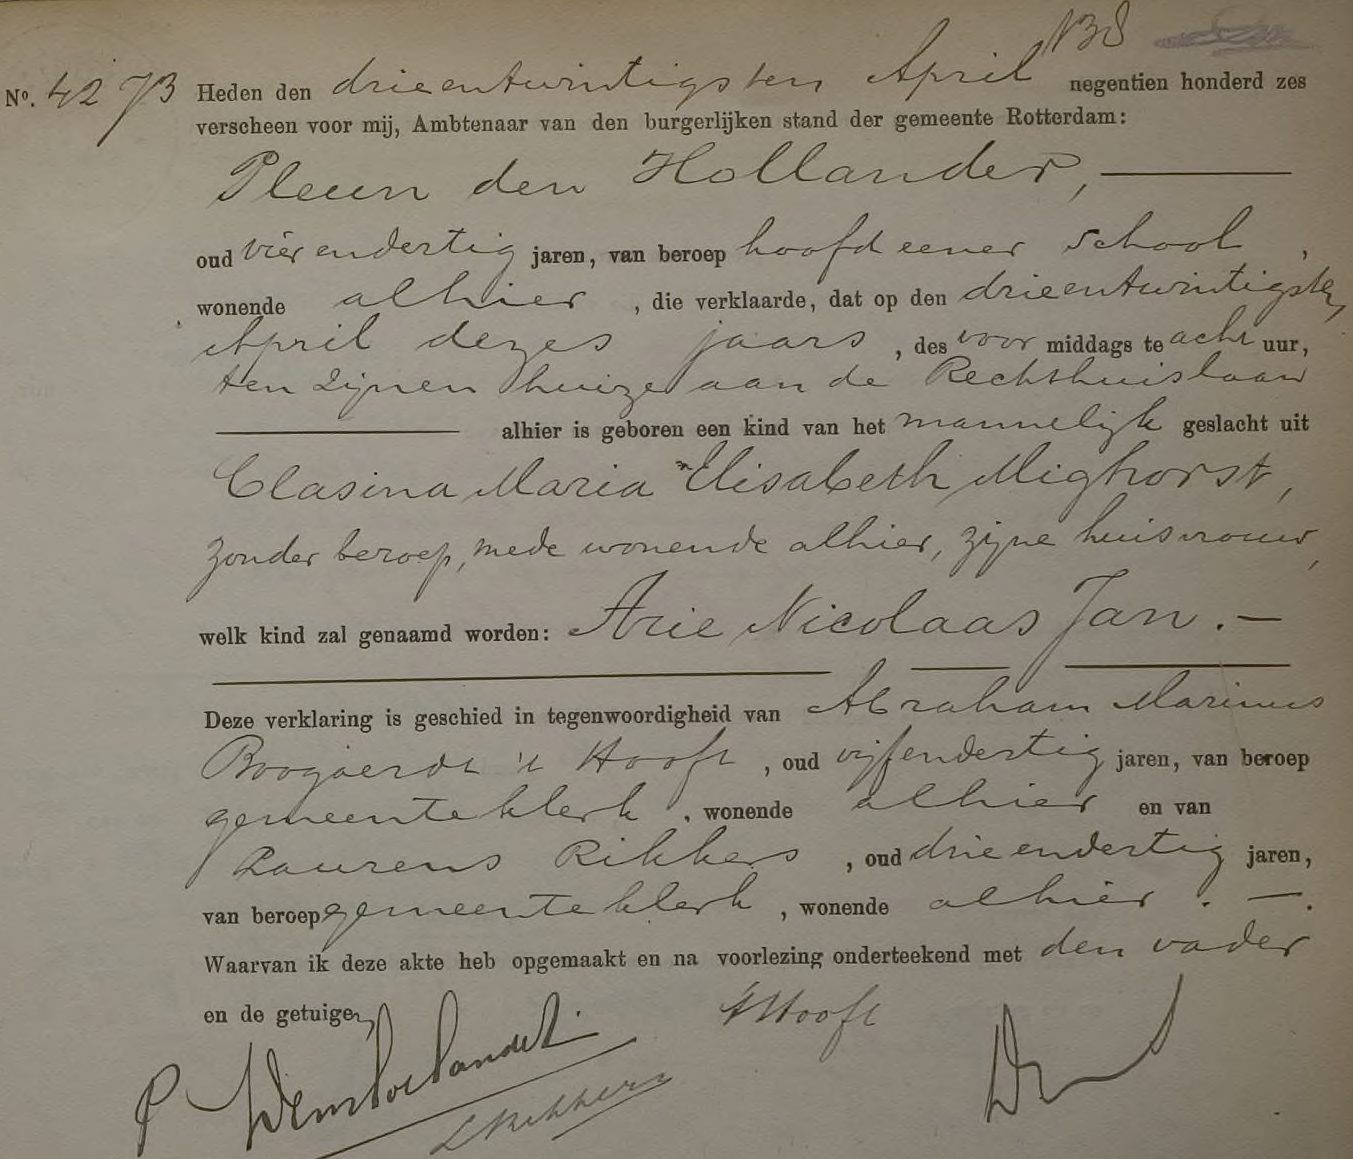 N38
No. 4273 Heden den drieentwintigsten April negentien honderd zes
verscheen voor mij, Ambtenaar van den burgerlijken stand der gemeente Rotterdam:
Pleun den Hollander,
oud vierendertig jaren, van beroep hoofd eener school,
wonende alhier, die verklaarde, dat op den drieentwintigsten
April dezes jaars, des voor middags te acht uur,
ten zijnen huize aan de Rechthuislaan
alhier is geboren een kind van het mannelijk geslacht uit
Clasina Maria Elisabeth Mighorst,
zonder beroep, mede wonende alhier, zijne huisvrouw,
welk kind zal genaamd worden: Arie Nicolaas Jan. —
Deze verklaring is geschied in tegenwoordigheid van Abraham Marinus
Boogaerdt 't Hooft, oud vijfendertig jaren, van beroep
gemeenteklerk, wonende alhier en van
Laurens Rikkers, oud drieendertig jaren,
van beroep gemeenteklerk, wonende alhier. —.
Waarvan ik deze akte heb opgemaakt en na voorlezing onderteekend met den vader
en de getuigen,
't Hooft
P DenHollander
LRikkers